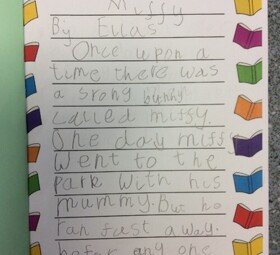 Miffy
By Ellas
Once upon a
time there was
a srong bunny
called miffy.
One day miffy
went to the
park with his
mummy. But he
ran fast a way.
befor any one